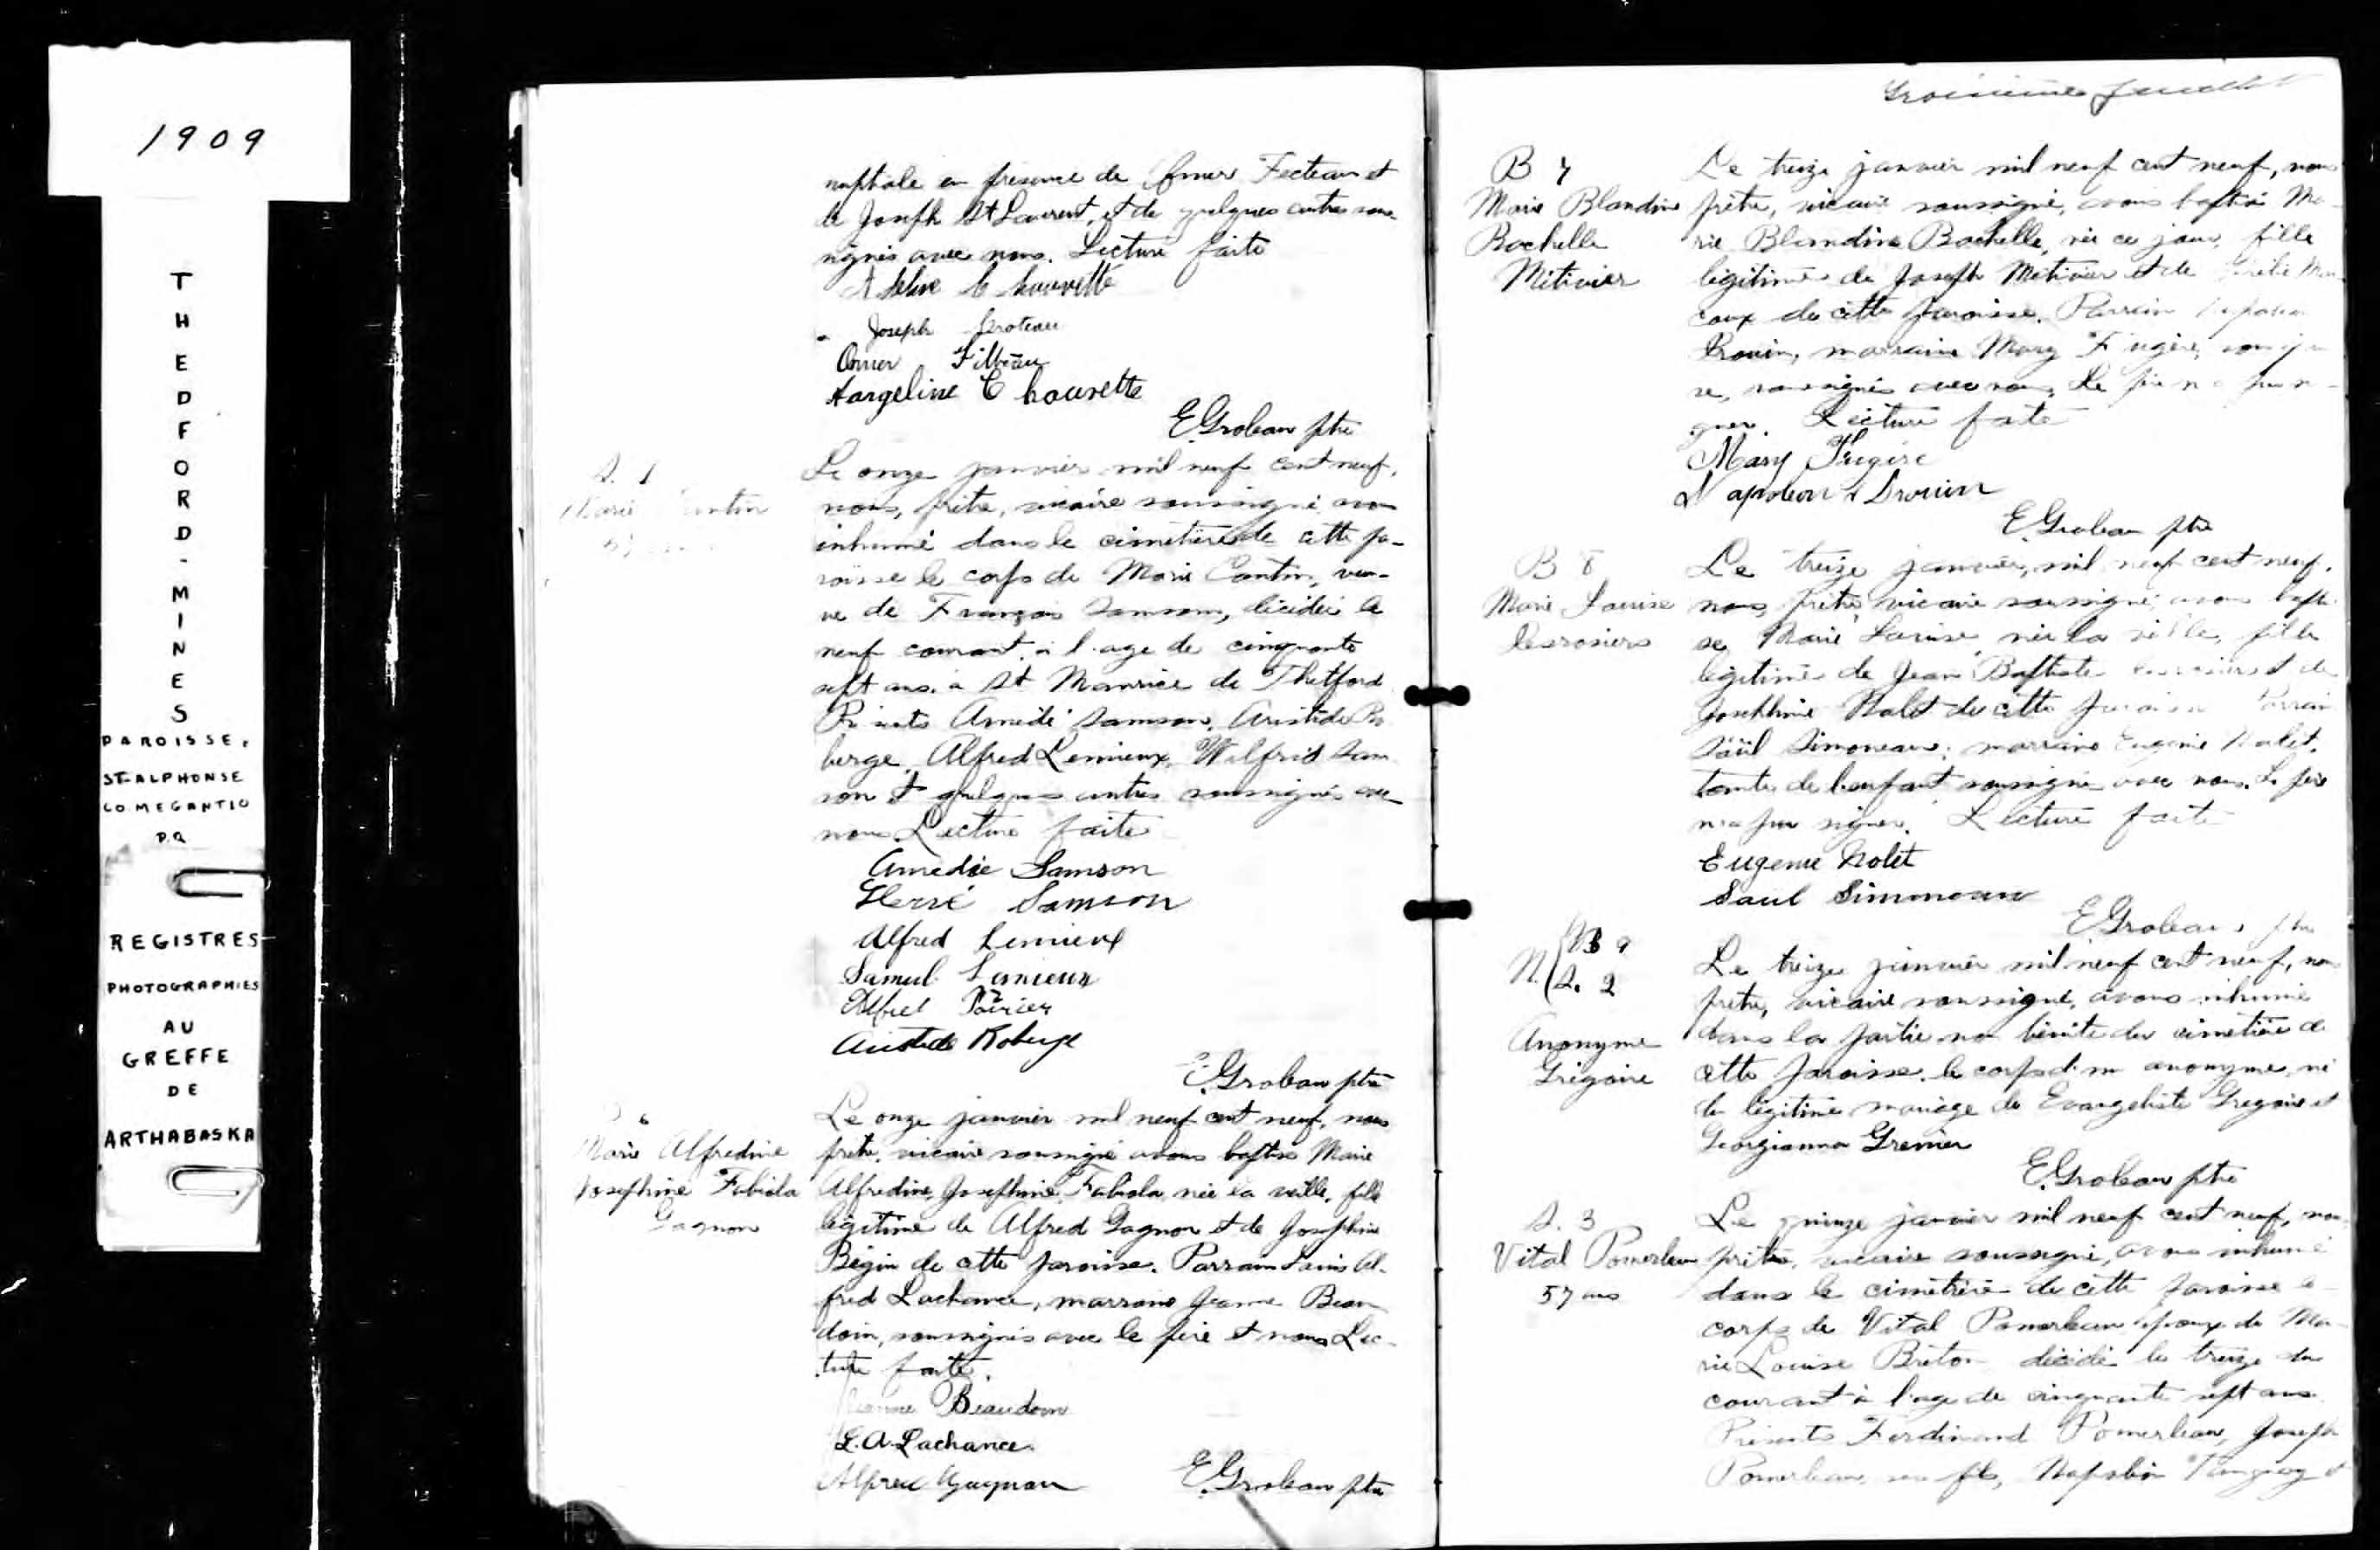 1909
THEDFORD-MINES
PAROISSE.
ST-ALPHONSE
CO. MEGANTIC
P.Q.
REGISTRES
PHOTOGRAPHIES
AU
GREFFE
DE
ARTHABASKA
nuptiale en présence de Omer Fecteau et
de Joseph St Laurent, et de quelques autres sous-
signés avec nous. Lecture faite
Joseph Groteau
Omer
Chourette
E. Groleau ptre
S. 1
Marie Cantin
Le onze janvier mil neuf cent neuf,
nous, prêtre, vicaire soussigné avons
inhumé dans le cimetière de cette pa-
roisse le corps de Marie Cantin, veu-
ve de François Samson, décidée le
neuf courant, à l'age de cinquante
sept ans, à St Maurice de Thetford
Présents Amédé Samson, Aristide Ro
berge, Alfred Lemieux, Wilfrid Sam
son et quelques autres soussignés avec
nous Lecture faite
Amédie Samson
Hervé Samson
Alfred Lemieux
Samuel Lemieux
Alfred Poirier
Aristide Roberge
E. Groleau ptre
B 6
Marie Alfredine
Josephine Fabiola
Gagnon
Le onze janvier mil neuf cent neuf, nous
prêtre, vicaire soussigné avons baptisé Marie
Alfredine, Josephine, Fabiola, née la veille, fille
légitime de Alfred Gagnon et de Josephine
Bégin de cette paroisse. Parrain Louis Al-
fred Lachance, marraine Jeanne Beau
doin, soussignés avec le père et nous Lec-
ture faite.
Jeanne Beaudoin
L. A. Lachance
Alfred Gagnon
E. Groleau ptre
Troisième feuillet
B 7
Marie Blandine
Rachelle
Mitivier
Le treize janvier mil neuf cent neuf, nous
prêtre, vicaire soussigné, avons baptisé Ma-
rie Blandine Rachelle, née ce jour, fille
légitime de Joseph Métivier et de
coux de cette paroisse. Parrain Napoléon
Drouin, marraine Mary Fugère,
soussignés avec nous. Le père n'a pu si-
gner. Lecture faite
Mary Fugère
Napoleon Drouin
E. Groleau ptre
B 8
Marie Louise
Desrosiers
Le treize janvier, mil neuf cent neuf,
nous, prêtre vicaire soussigné avons bapti-
sé Marie Louise, née la veille, fille
légitime de Jean Baptiste Desrosiers et de
Josephine Nolet de cette paroisse Parrain
Saül Simoneau, marraine Eugenie Nolet,
tante de l'enfant soussignés avec nous. Le père
n'a pu signer. Lecture faite
Eugenie Nolet
Saul Simmoneau
E. Groleau ptre
B 9
N. S. 2
Anonyme
Grégoire
Le treize janvier mil neuf cent neuf, nous
prêtre, vicaire soussigné, avons inhumé
dans la partie non bénite du cimetière de
cette paroisse, le corps d'un anonyme, né
du légitime mariage de Evangeliste Gregoire et
Georgianna Grenier
E. Groleau ptre
S. 3
Vital Pomerleau
57 ans
Le quinze janvier mil neuf cent neuf, nous
prêtre, vicaire soussigné, avons inhumé
dans le cimetière de cette paroisse le
corps de Vital Pomerleau époux de Ma-
rie Louise Breton décédé le treize du
courant à l'age de cinquante sept ans.
Présents Ferdinand Pomerleau, Joseph
Pomerleau, ses fils, Napoléon Tanguay et